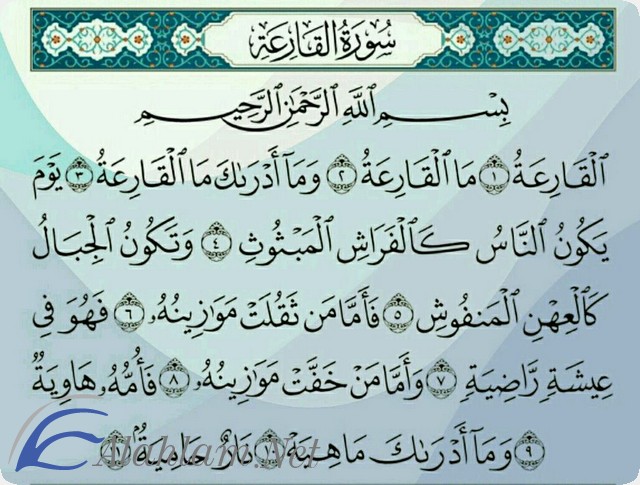 سُورَةُ القَارِعَةِ
بِسْمِ ٱللَّهِ ٱلرَّحْمَٰنِ ٱلرَّحِيمِ
ٱلْقَارِعَةُ ١ مَا ٱلْقَارِعَةُ ٢ وَمَآ أَدْرَىٰكَ مَا ٱلْقَارِعَةُ ٣ يَوْمَ
يَكُونُ ٱلنَّاسُ كَٱلْفَرَاشِ ٱلْمَبْثُوثِ ٤ وَتَكُونُ ٱلْجِبَالُ
كَٱلْعِهْنِ ٱلْمَنفُوشِ ٥ فَأَمَّا مَن ثَقُلَتْ مَوَٰزِينُهُۥ ٦ فَهُوَ فِى
عِيشَةٍ رَّاضِيَةٍ ٧ وَأَمَّا مَنْ خَفَّتْ مَوَٰزِينُهُۥ ٨ فَأُمُّهُۥ هَاوِيَةٌ
٩ وَمَآ أَدْرَىٰكَ مَا هِيَهْ ١٠ نَارٌ حَامِيَةٌۢ ١١
Alahlam.Net